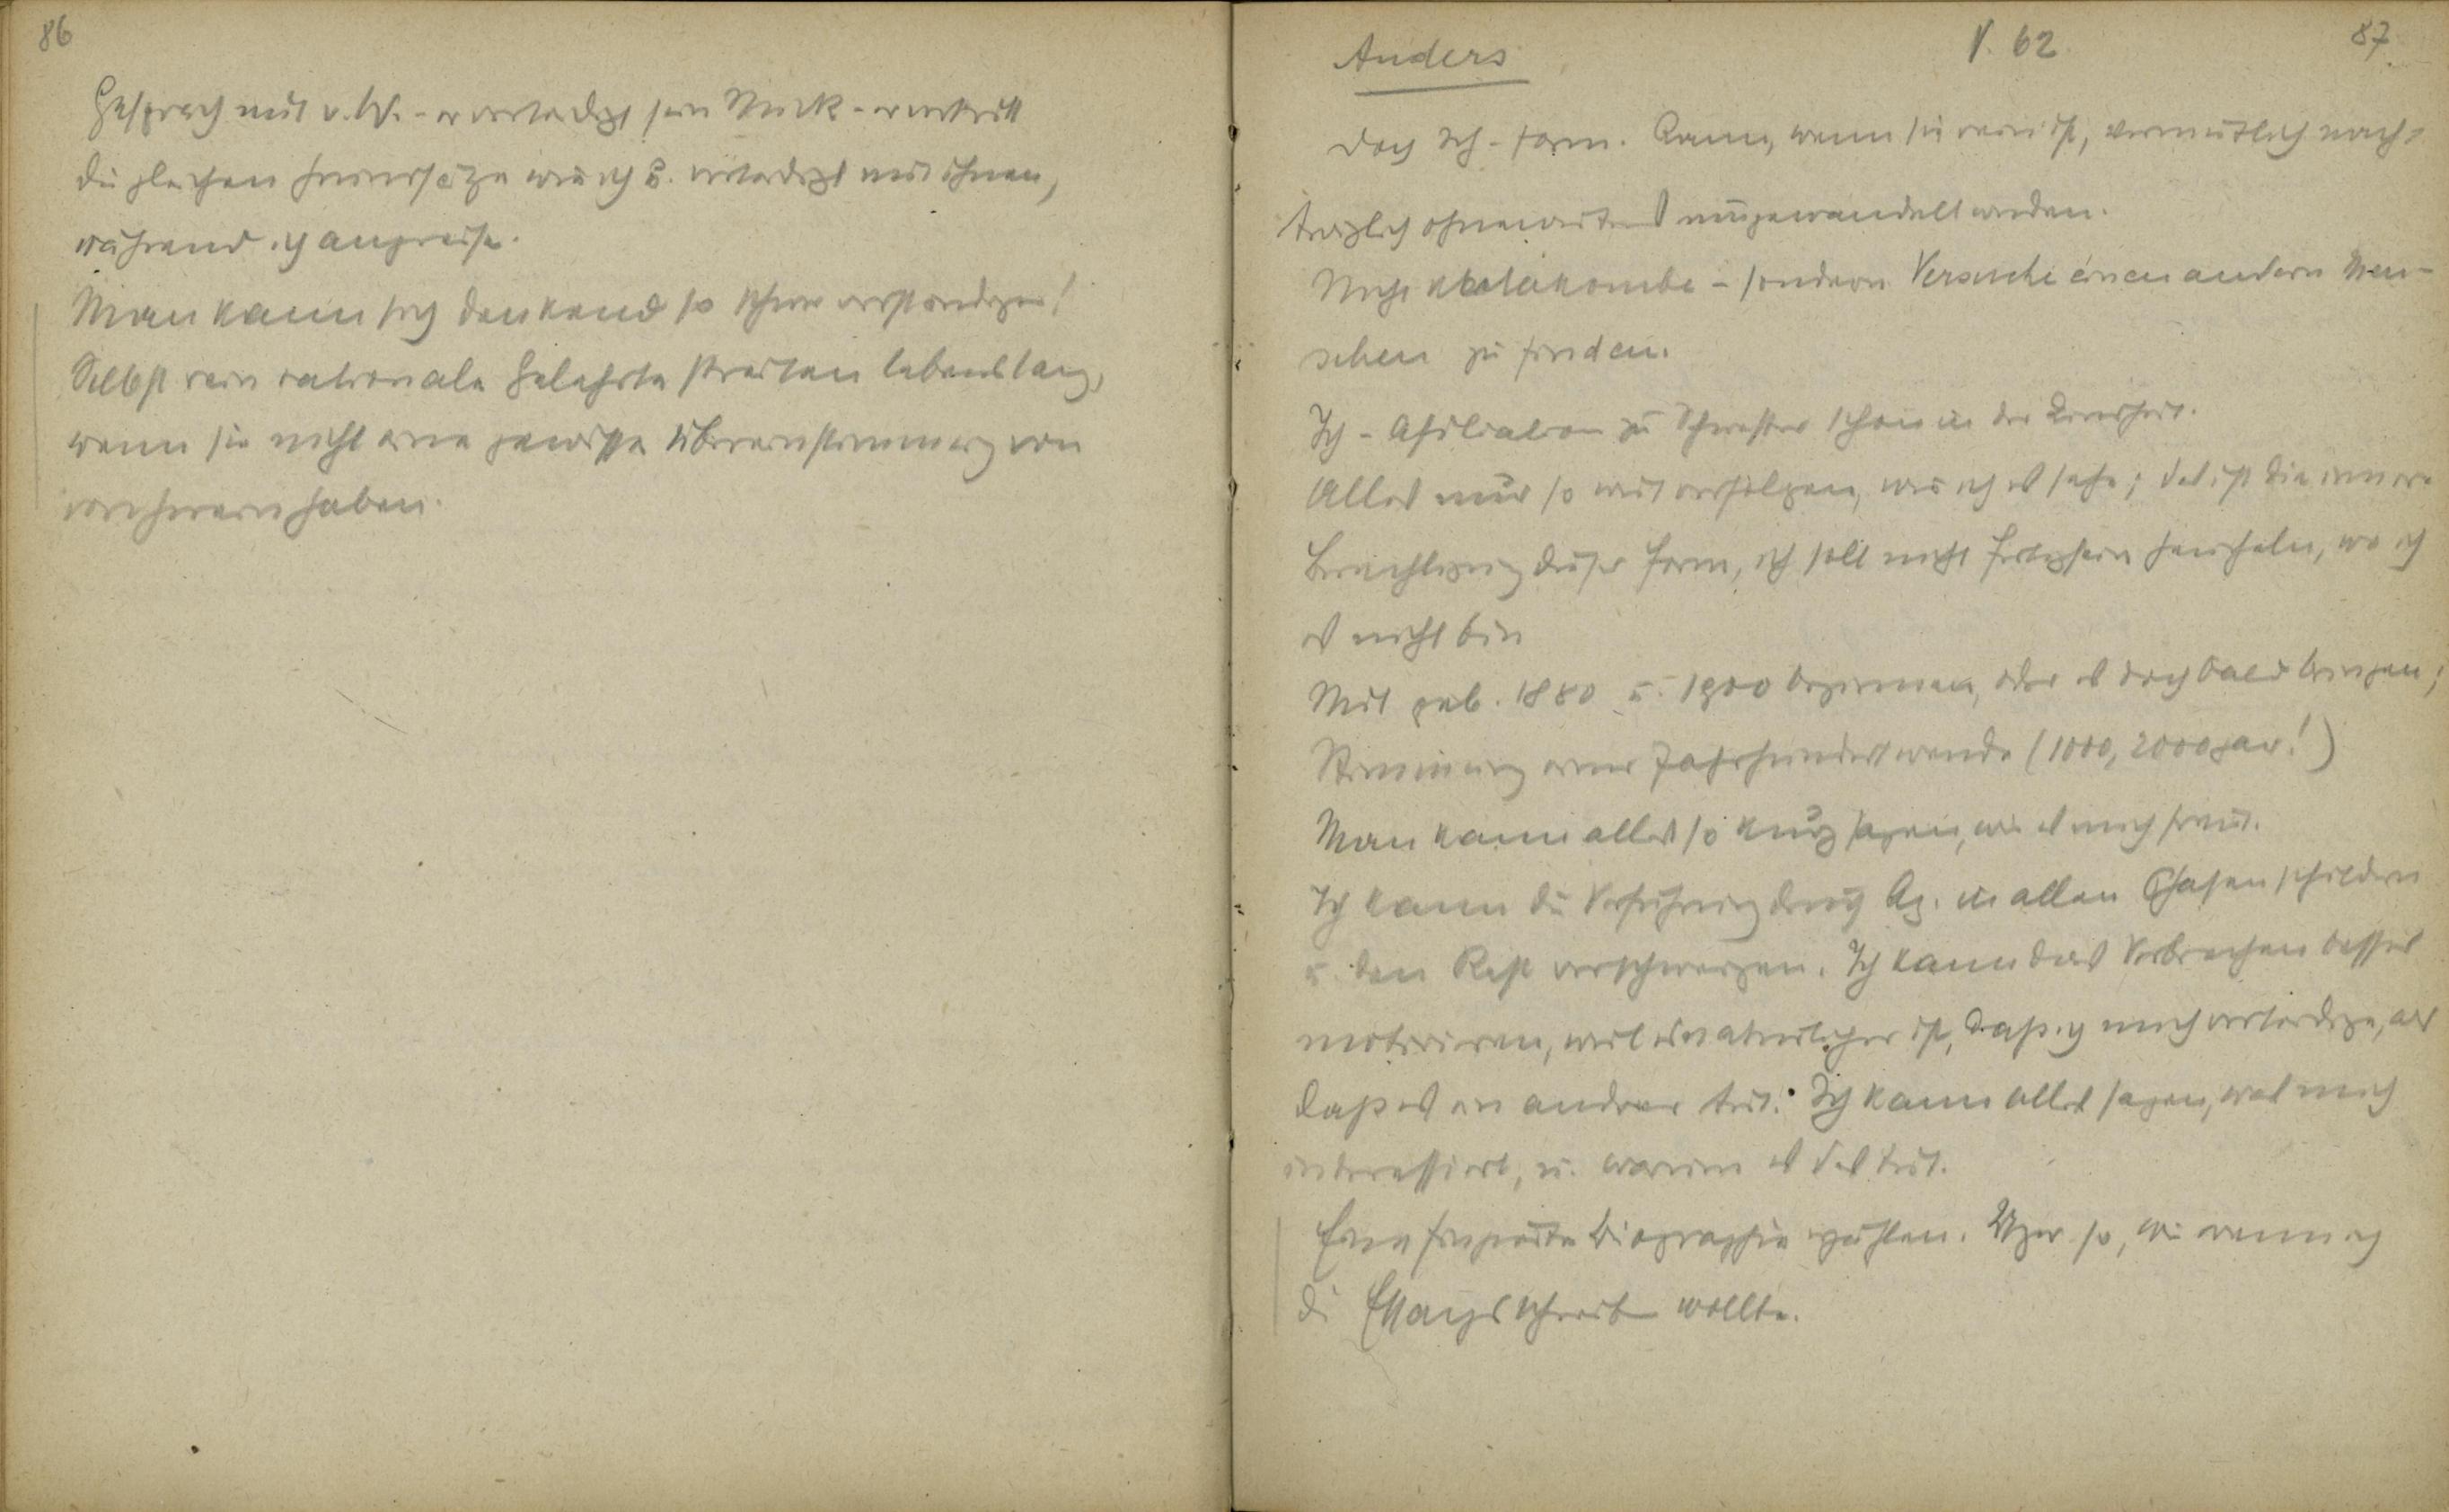 86
Gespräch mit v. W. - er verteidigt sein Stück - er vertritt
die gleichen Grundsätze wie ich u. verteidigt mit ihnen,
während ich angreife.
Man kann sich denkend so schwer verständigen!
Selbst rein rationale Gelehrte streiten lebenslang,
wenn sie nicht eine gewisse Übereinstimmung von
vornherein haben.
Anders
V. 62
87
Doch Ich-Form. Kann, wenn sie rein ist, vermutlich nach=
träglich ohneweiters umgewandelt werden.
Nicht Katakombe - sondern Versuche einen andern Men-
schen zu finden.
Ich - Afiliation zu Schwester schon in der Kindheit.
Alles nur so weit verfolgen, wie ich es sehe; das ist die innere
Berechtigung dieser Form, ich soll nicht Fertigsein heucheln, wo ich
es nicht bin
Mit geb. 1880 u. 1900 beginnen, oder es doch bald bringen;
Stimmung einer Jahrhundertwende (1000, 2000 gar!)
Man kann alles so kurz sagen, wie es mich freut.
Ich kann die Verführung durch Ag. in allen Phasen schildern
u. den Rest verschweigen. Ich kann das Verbrechen besser
motivieren, weil es natürlicher ist, daß ich mich verteidige, als
daß es ein andrer tut. Ich kann alles sagen, was mich
interessiert, u. warum es das tut.
Eine fingierte Biographie erzählen. Aber so, wie wenn ich
die Essays schreiben wollte.